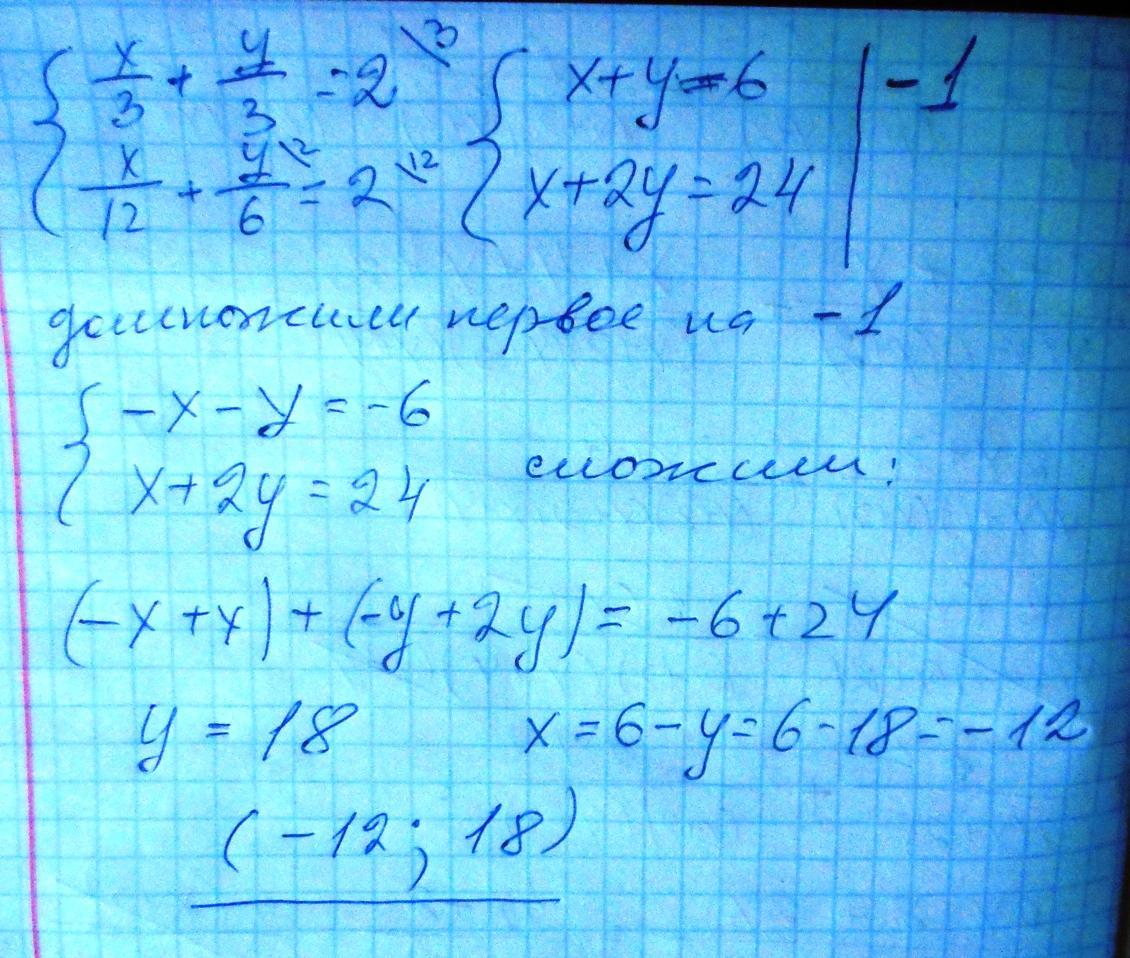 { x/3 + y/3 = 2 \3 { x+y=6 | -1
x/12 + y/6 \2 = 2 \12 x+2y=24
домножили первое на -1
{ -x-y=-6
x+2y=24 сложим:
(-x+x)+(-y+2y)=-6+24
y=18 x=6-y=6-18=-12
(-12; 18)